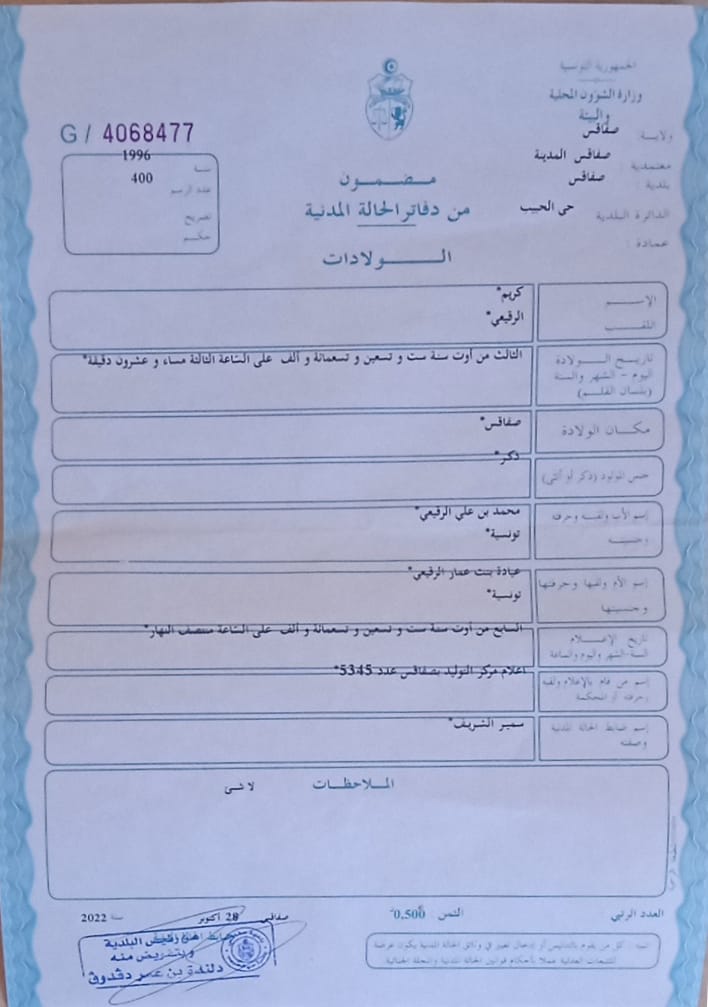 الجمهورية التونسية
وزارة الشؤون المحلية
والبيئة
ولاية : صفاقس
معتمدية : صفاقس المدينة
بلدية : صفاقس
الدائرة البلدية حي الحبيب
عمادة :
G / 4068477
سنة 1996
عدد الرسم 400
تصريح
حكم
مضمون
من دفاتر الحالة المدنية
الولادات
الإسم كريم*
اللقب الرقيعي*
تاريخ الولادة الثالث من أوت سنة ست و تسعين و تسعمائة و ألف على الساعة الثالثة مساء و عشرون دقيقة*
اليوم - الشهر والسنة
(بلسان القلم)
مكان الولادة صفاقس*
جنس المولود (ذكر أو أنثى) ذكر*
إسم الأب ولقبه وحرفته محمد بن علي الرقيعي*
وجنسيته تونسية*
إسم الأم ولقبها وحرفتها عيادة بنت عمار الرقيعي*
وجنسيتها تونسية*
تاريخ الإعلام السابع من أوت سنة ست و تسعين و تسعمائة و ألف على الساعة منتصف النهار*
السنة-الشهر واليوم والساعة
إسم من قام بالإعلام ولقبه اعلام مركز التوليد بصفاقس عدد 5345*
وحرفته أو المحكمة
إسم ضابط الحالة المدنية سمير الشريف*
وصفته
الملاحظات لا شئ
العدد الرتبي
الثمن 0,500د
صفاقس 28 أكتوبر سنة 2022
تنبيه : كل من يقوم بالتدليس أو إدخال تغيير في وثائق الحالة المدنية يكون عرضة
للتتبعات العدلية عملا بأحكام قوانين الحالة المدنية والمجلة الجنائية
عن رئيس البلدية
وبتفويض منه
دلندة بن عمر دڤدوڤ